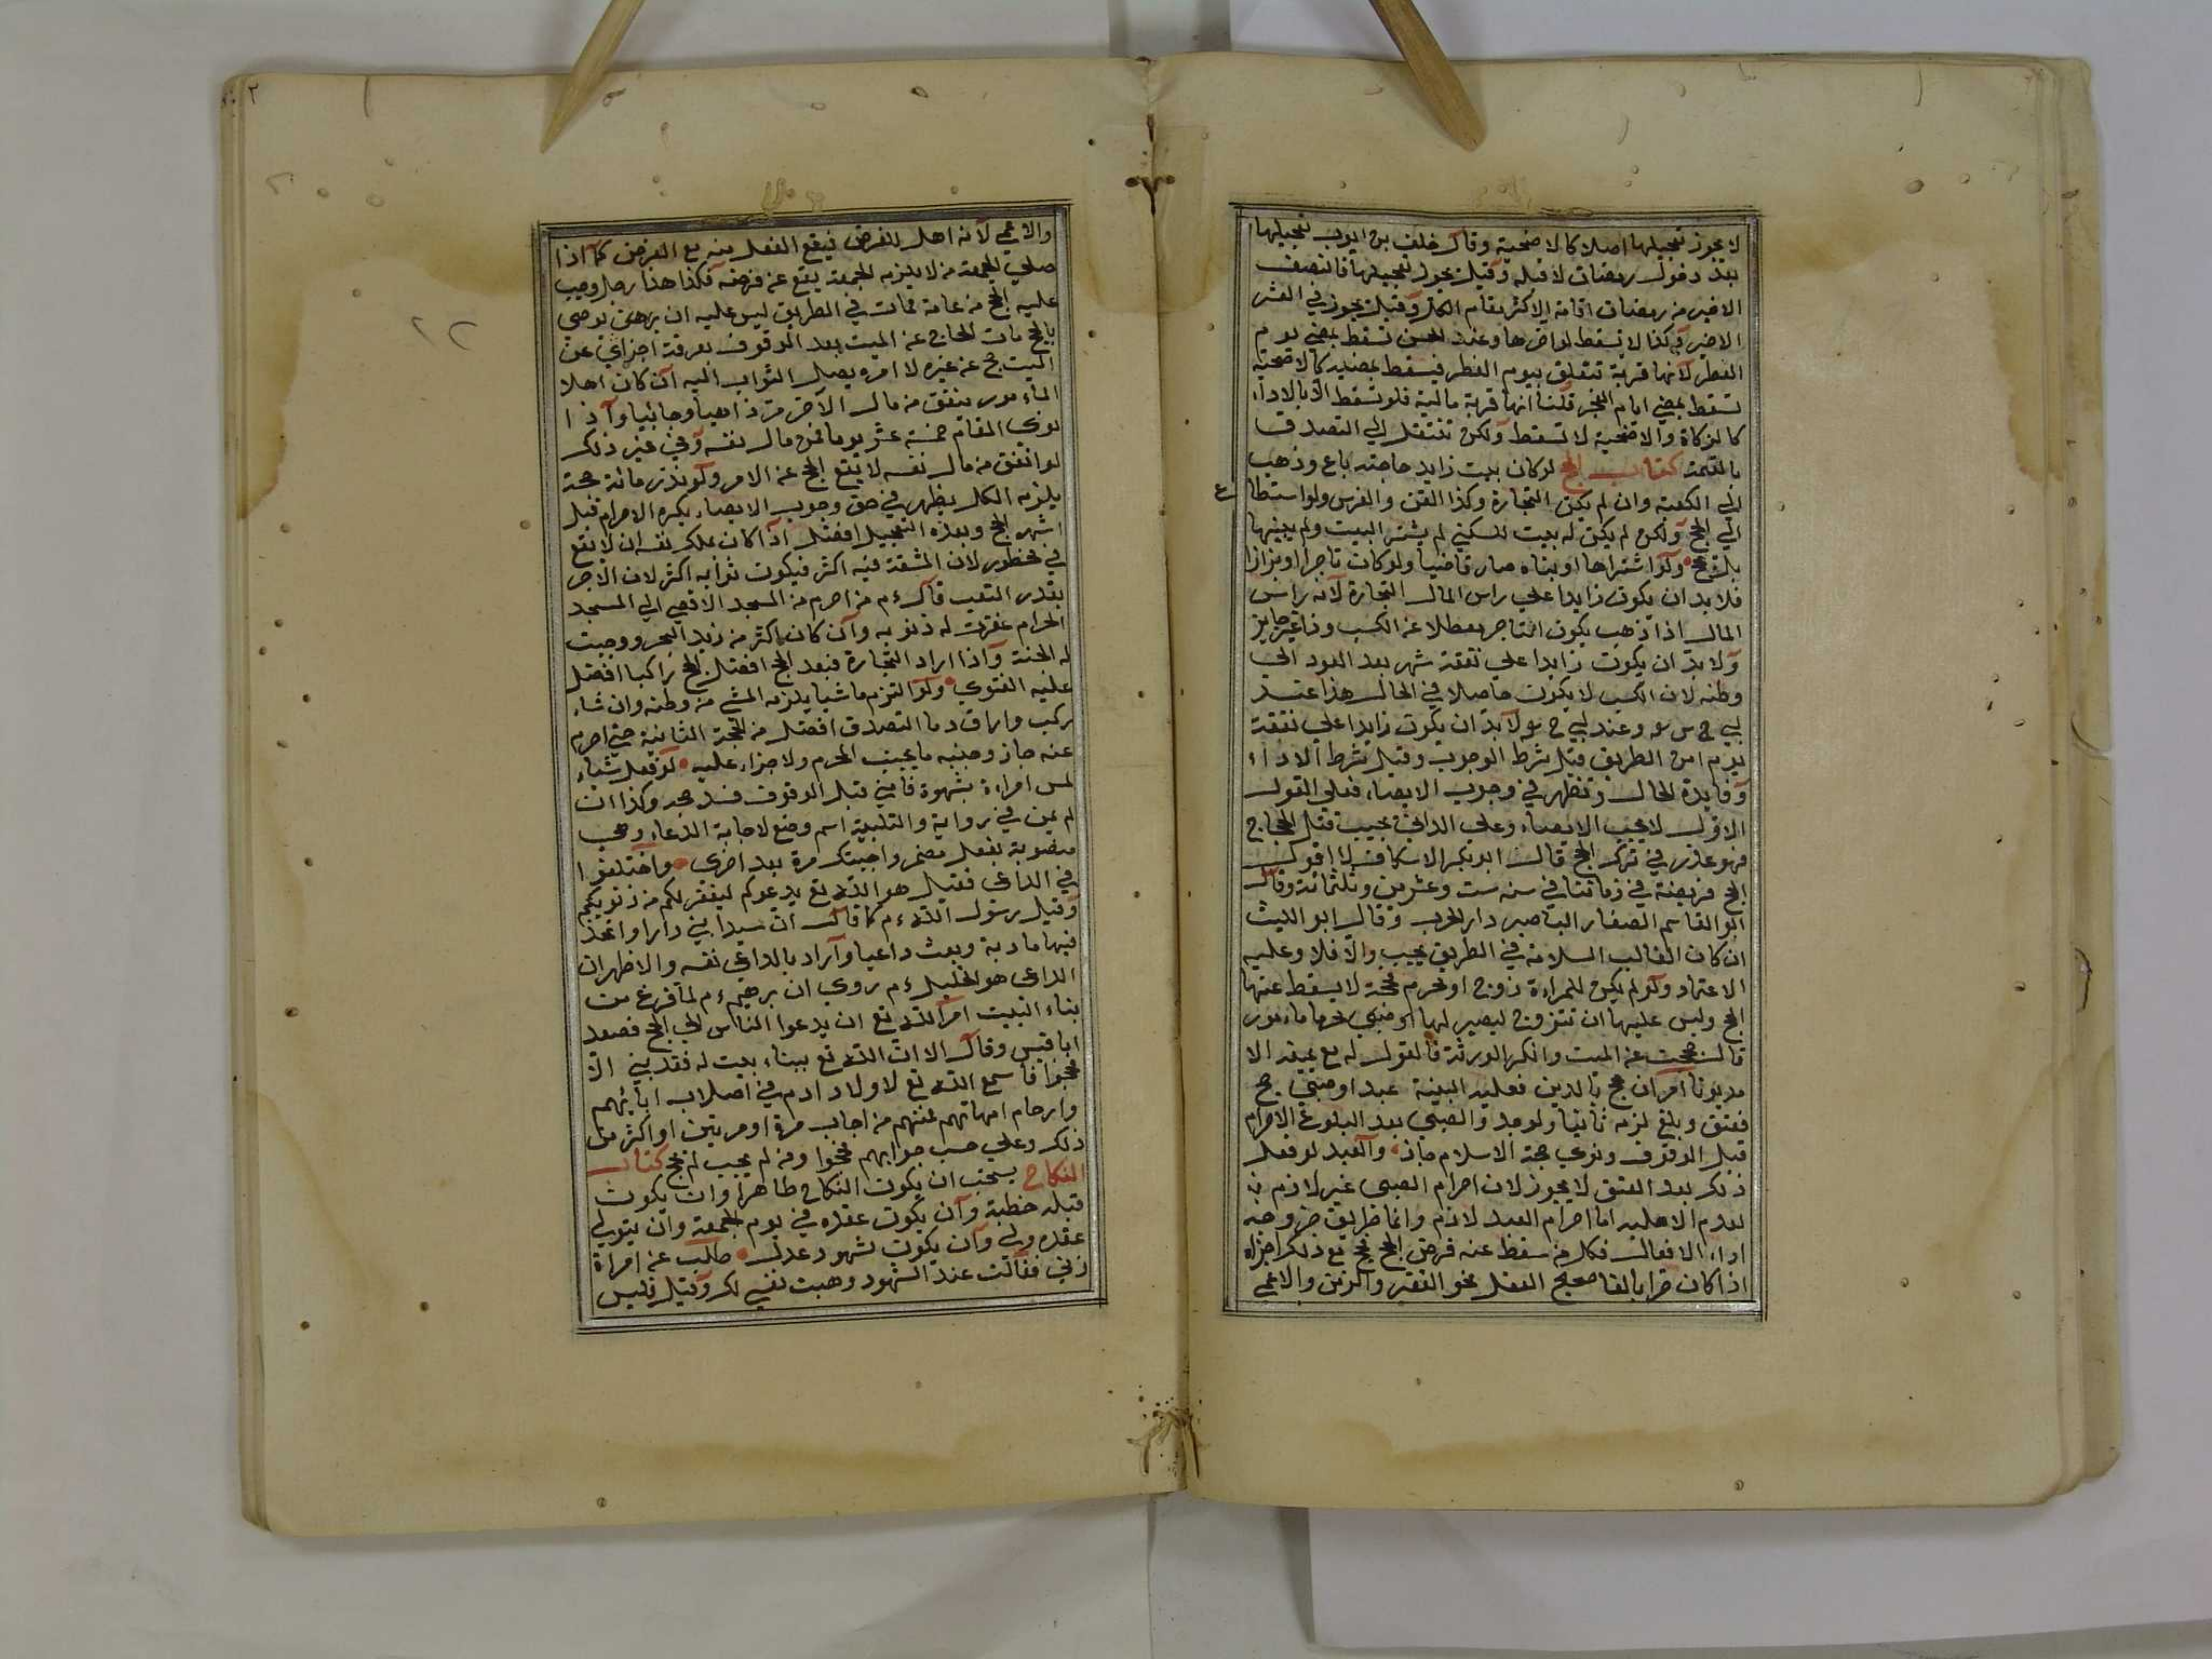 لا يجوز تعجيلها اصلا كالاضحية وقال خلف بن ايوب تعجيلها
بعد دخول رمضان لا قبله وقيل يجوز تعجيلها في النصف
الاخير من رمضان اقامة الاكثر مقام الكل وقيل يجوز في العشر
الاخير كذا لا تسقط لو اخرها وعند الحسن تسقط بمضي يوم
الفطر لانها قربة تتعلق بيوم الفطر فيسقط بمضيه كالاضحية
تسقط بمضي ايام النحر قلنا انها قربة مالية فلو تسقط الا بالاداء
كالزكاة والاضحية لا تسقط ولكن تنتقل الي التصدق
بالقيمة كتاب الحج لو كان بيت زايد حاجته باع وذهب
الي الكعبة وان لم تكن التجارة وكذا القن والفرس ولو استطاع
الي الحج ولكن لم يكن له بيت للسكني لم يشتر البيت ولم يبنها
بل يحج ولو اشتراها او بناه صار قاضيا ولو كان تاجرا او بزازا
فلا بد ان يكون زايدا علي راس المال التجارة لانه راس
المال اذا ذهب يكون التاجر معطلا عن الكسب وذا غير جايز
ولا بد ان يكون زايدا علي نفقة شهر بعد العود الي
وطنه لان الكسب لا يكون حاصلا في الحال هذا عند
ابي س وعند ابي ح لا بد ان يكون زايدا علي نفقة
يوم امن الطريق قيل شرط الوجوب وقيل شرط الاداء
وفايدة الحال وتظهر في وجوب الايصاء فعلي القول
الاول لا يجب الايصاء وعلي الثاني يجب قتل الحجاج
فهو عذر في ترك الحج قال ابو بكر الاسكاف لا اقول
الحج فريضة في زماننا في سنه ست وعشرين وثلثمائة وقال
ابو القاسم الصفار البا صير دار الحرب وقال ابو الليث
ان كان الغالب السلامة في الطريق يجب والا فلا وعليه
الاعتماد ولو لم يكن للمراءة زوج او محرم لحجة لا يسقط عنها
الحج وليس عليها ان تتزوج ليصير لها او صبي مامور
قال حججت عن الميت وانكر الورثة فالقول له مع يمينه الا
مديونا امر ان يحج بالدين فعليه البينة عبد او صبي حج
فعتق وبلغ لزمه ثانيا ولو جدد الصبي بعد البلوغ الاحرام
قبل الوقوف ونوي حجة الاسلام جاز والعبد لو فعل
ذلك بعد العتق لا يجوز لان احرام الصبي غير لازم
لعدم الاهلية اما احرام العبد لازم وانما طريق خروجه
اداء الافعال فكل من سقط عنه فرض الحج فحج مع ذلك اجزاه
اذا كان حرا بالغا صحيح العقل نحو الفقير والزمن والاعمي
والاعمي لانه اهل للفرض فيقع الفعل منه مع الفرض كما اذا
صلي الجمعة من لا يلزمه الجمعة يقع عن فرضه فكذا هذا رجل وجب
عليه الحج من عامه فمات في الطريق ليس عليه ان يوصي
بالحج مات الحاج عن الميت بعد الوقوف بعرفة اجزاي عن
الميت حج عن غيره لا امره يصل الثواب اليه ان كان اهلا
المامور ينفق من مال الآخر ذاهبا وجائيا واذا
نوي المقام خمسة عشر يوما فمن مال نفسه وفي غير ذلك
لو انفق من مال نفسه لا يقع الحج عن الامر ولو نذر مائة حجة
يلزمه الكل يظهر في حق وجوب الايصاء يكره الاحرام قبل
اشهر الحج وبعده التعجيل افضل اذا كان يملك نفسه ان لا يقع
في محظور لان المشقة فيه اكثر فيكون ثوابه اكثر لان الاجر
بقدر التعب قال ءم من احرم من المسجد الاقصي الي المسجد
الحرام غفرت له ذنوبه وان كان اكثر من زبد البحر ووجبت
له الجنة واذا اراد التجارة فبعد الحج افضل الحج راكبا افضل
عليه الفتوي ولو التزم ماشيا يلزمه المشي من وطنه وان شاء
ركب واراق دما التصدق افضل من الحجة الثانية صبي احرم
عنه جاز وجنبه ما يجنب المحرم ولا جزاء عليه لو فعل شياء
لمس امراءة بشهوة فامني قبل الوقوف فسد حجه وكذا ان
لم يمن في رواية والتلبية اسم وضع لاجابة الدعاء وهي
منصوبة بفعل مضمر واجيبتك مرة بعد اخري واختلفوا
في الداعي فقيل هو الله تع يدعوكم ليغفر لكم من ذنوبكم
وقيل رسول الله ءم كما قال ان سيدا بني دارا واتخذ
فيها مادبة وبعث داعيا واراد بالداعي نفسه والاظهر ان
الداعي هو الخليل ءم روي ان برهيم ءم لما فرغ من
بناء البيت امر الله تع ان يدعوا الناس الي الحج فصعد
ابا قبيس وقال الا ان الله تع ببناء بيت له فقد بني الا
فحجوا فاسمع الله تع لاولاد ادم في اصلاب ابائهم
وارحام امهاتهم فمنهم من اجاب مرة او مرتين او اكثر من
ذلك وعلي حسب جوابهم فحجوا ومن لم يجب لم يحج كتاب
النكاح يستحب ان يكون النكاح ظاهرا وان يكون
قبله خطبة وان يكون عقده في يوم الجمعة وان يتولي
عقده ولي وان يكون شهود عدل طلب عن امراة
زني فقالت عند الشهود وهبت نفسي لك وقيل فليس